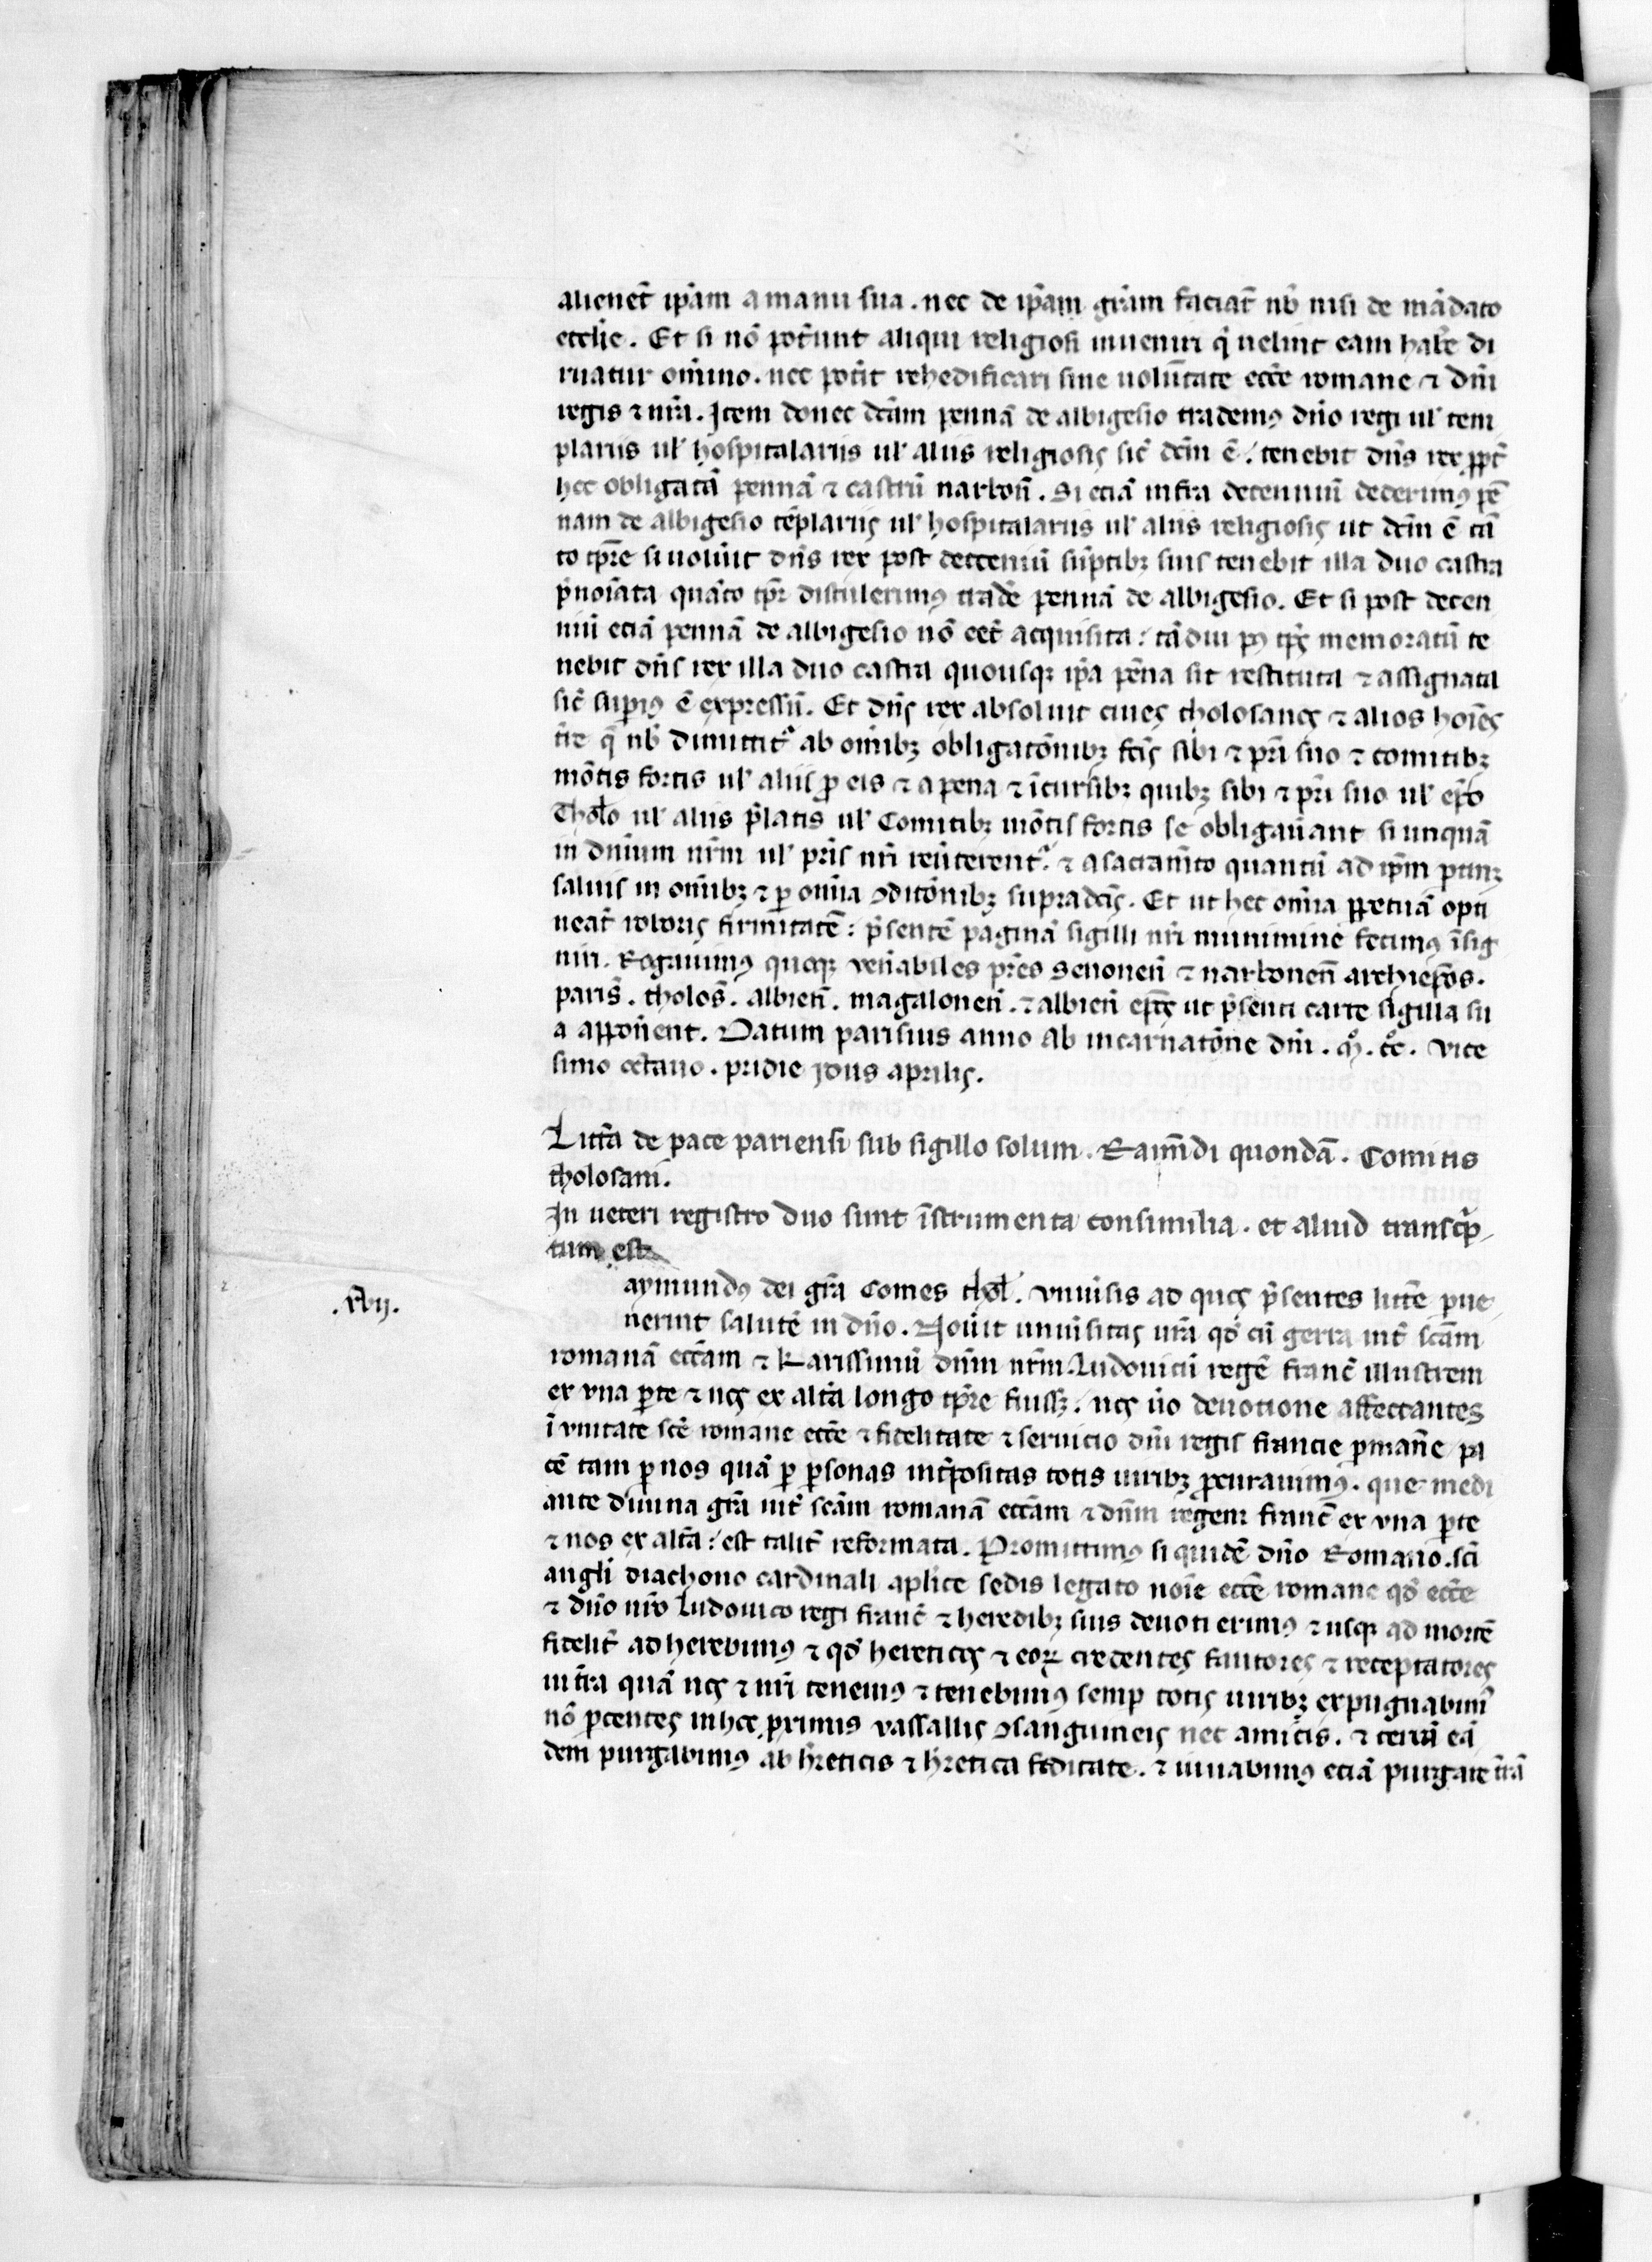 alienet̄ ip̄am a manu sua . nec de ip̄am grām faciat̄ nb̄ nisi de mādato
eccl̄ie . Et si nō pot̄unt aliqui religiosi inueniri q̄ uelint eam hab̄e di
ruatur om̄ino . nec pot̄it rehedificari sine uolūtate ecc̄e romane ⁊ dn̄i
regis ⁊ nr̄a . Item donec dc̄am pennā de albigesio trademꝰ dn̄o regi ul̓ tem
plariis ul̓ hospitalariis ul̓ aliis religiosis sic̄ dc̄m ē . tenebit dn̄s rex ꝓpt̄
hec obligatā pennā ⁊ castrū narbon̄ . Si eciā infra decenniū dederimꝰ pē
nam de albigesio tēplariis ul̓ hospitalariis ul̓ aliis religiosis ut dc̄m ē tā
to tp̄re si uolūit dn̄s rex post deccenniū sūptibꝫ suis tenebit illa duo castra
p̄noīata quāto tp̄r distulerimꝰ trad̄e pennā de albigesio . Et si post decen
niū eciā pennā de albigesio nō eēt acquisita : tādiu pꝰ tp̄s memoratū te
nebit dn̄s rex illa duo castra quousqꝫ ip̄a pēna sit restituta ⁊ assignata
sic̄ supiꝰ ē expressū . Et dn̄s rex absoluit ciues tholosanos ⁊ alios hoīes
t̄re q̄ nb̄ dimittit̄ ab om̄ibꝫ obligatōnibꝫ fc̄is sibi ⁊ pr̄i suo ⁊ comitibꝫ
mōtis fortis ul̓ aliis ꝓ eis ⁊ a pena ⁊ īcursibꝫ quibꝫ sibi ⁊ pr̄i suo ul̓ ep̄o
Thol̄o ul̓ aliis p̄latis ul̓ Comitibꝫ mōtis fortis se obligau̅ant si unquā
in dn̄ium nr̄m ul̓ pr̄is nr̄i reūterent̄ . ⁊ a sacramēto quantū ad ip̄m ptinꝫ
saluis in om̄ibꝫ ⁊ ꝑ om̄ia ꝯditōnibꝫ supradc̄is . Et ut hec om̄ia ꝑpetuā opti
neāt roboris firmitatē : p̄sentē paginā sigilli nr̄i munimine fecimꝰ īsig
niri . Rogauimꝰ quoqꝫ ven̄abiles pr̄es Senonen̄ ⁊ narbonen̄ archiep̄os .
paris̄ . tholos̄ . albien̄ . magalonen̄ . ⁊ albien̄ ep̄os ut p̄senti carte sigilla su
a appon̄ent . Datum parisius anno ab incarnatōne dn̄i . mͦ . ccͦ . vice
simo octauo . pridie ydus aprilis .
Litt̄a de pace pariensi sub sigillo solum . Raim̄di quondā . Comitis
tholosani .
In ueteri registro duo sunt īstrumenta consimilia . et aliud transcp̄
tum est
. xvij .
aymundꝰ dei gr̄a Comes thol̄ . vniuīsis ad quos p̄sentes litt̄e puē
nerint salutē in dn̄o . Noūit uniuīsitas ur̄a qd̄ cū gerra int̄ scā̄m
romanā ecc̄am ⁊ karissimū dn̄m nr̄m . Ludouicū regē franc̄ illustrem
ex vna pte ⁊ nos ex alt̄a longo tp̄re fuissꝫ . nos ūo deuotione affectantes
ī vnitate sc̄e romane ecc̄e ⁊ fidelitate ⁊ seruicio dn̄i regis francie pman̄e pa
cē tam ꝑ nos quā ꝑ psonas int̄positas totis uiribꝫ ꝓcurauimꝰ . que medi
ante diuina gr̄a int̄ scā̄m romanā ecc̄am ⁊ dn̄m regem franc̄ ex vna pte
⁊ nos ex alt̄a : est talit̄ reformata . Promittimꝰ siquidē dn̄o Romano . sc̄i
angl̄i diachono cardinali ap̄lice sedis legato noīe ecc̄e romane qd̄ ecc̄e
⁊ dn̄o nr̄o Ludouico regi franc̄ ⁊ heredibꝫ suis deuoti erimꝰ ⁊ usqꝫ ad mortē
fidelit̄ adherebimꝰ ⁊ qd̄ hereticos ⁊ eoꝝ credentes fautores ⁊ receptatores
in t̄ra quā nos ⁊ nr̄i tenemꝰ ⁊ tenebimꝰ semp totis uiribꝫ expugnabimꝰ
nō pcentes in hoc primis vassallis ꝯsanguineis nec amicis . ⁊ terrā eā
dem purgabimꝰ ab h̄reticis ⁊ h̄retica feditate . ⁊ iuuabimꝰ eciā purgare t̄rā